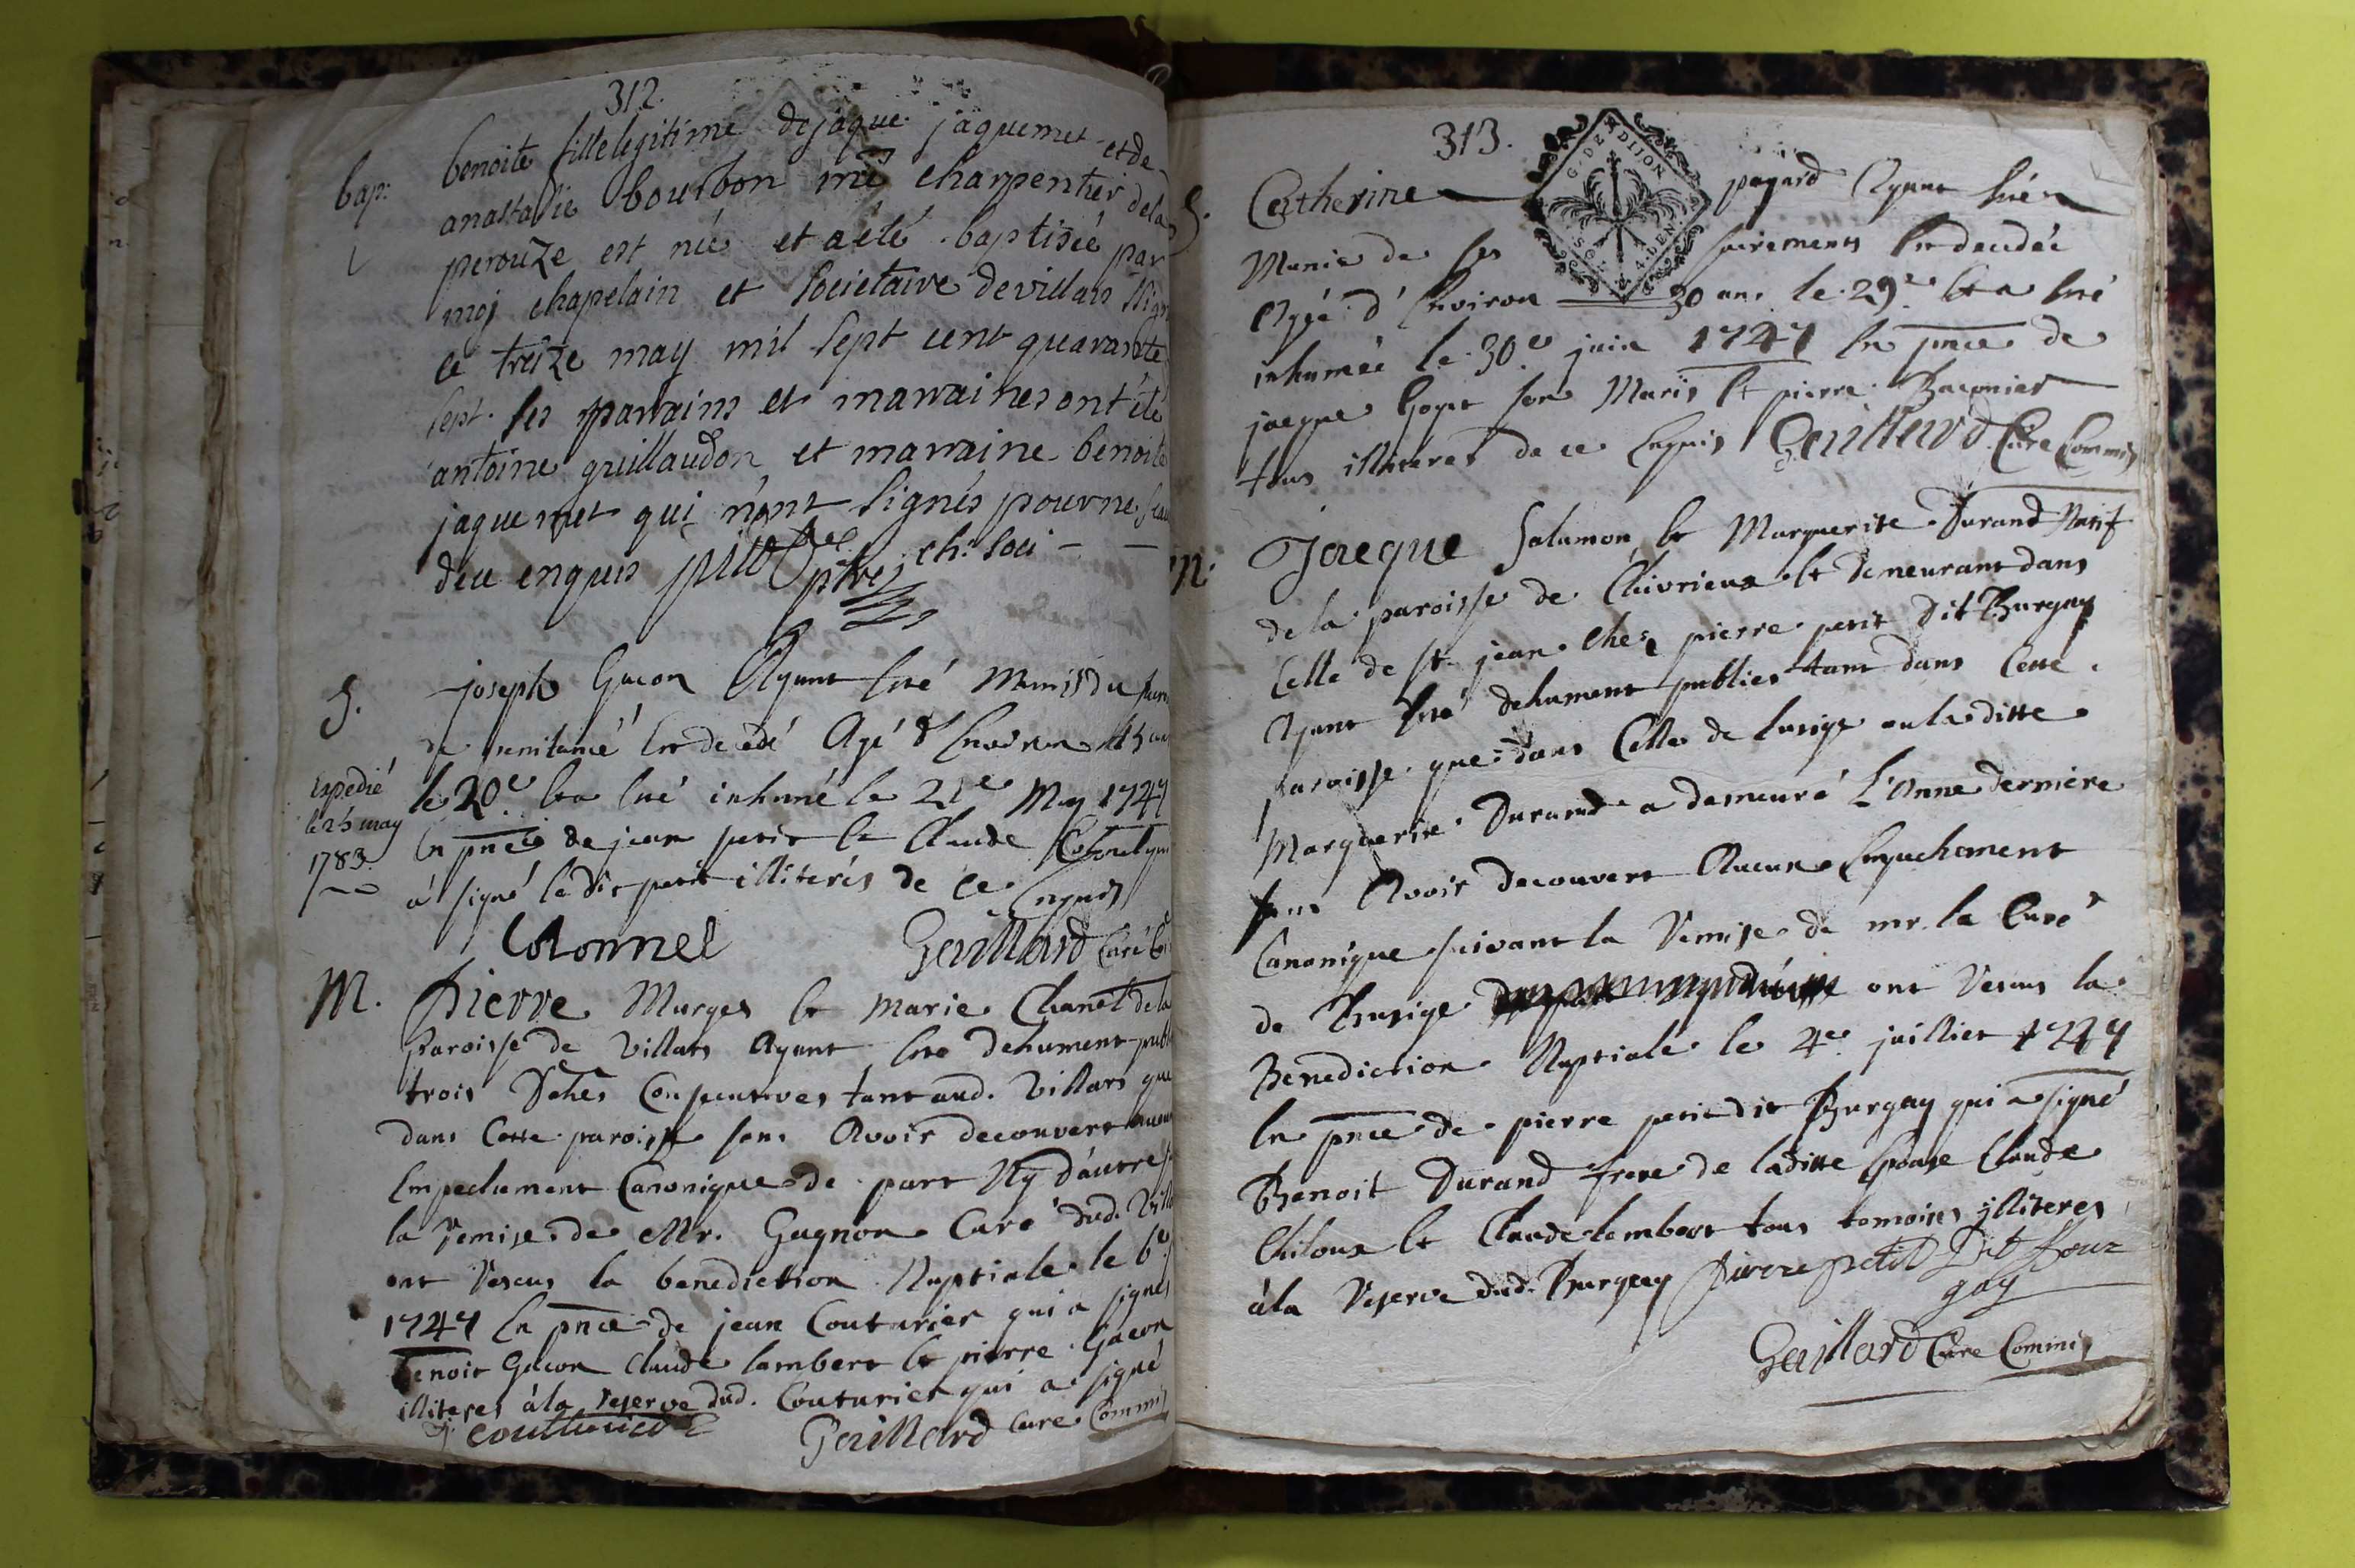 312.
bap:
benoite fille legitime de jaque jaquemet et de
anastasie bourbon me charpentier de la
perouze est née et a été baptisée par
moj chapelain et societaire de villars
ce treize may mil sept cent quarante
sept. ses parrains et marraines ont été
antoine guillaudon et marraine benoite
jaquemet qui n'ont signés pour ne
de ce enquis ptre ch. soci
S.
joseph Gacon Ayant été Munis du
de penitance est decedé Agé d'Environ 45
Expedié
le 25 may
1783
le 20e et a été inhumé le 21e May 1747
En pnce de jean petit et Claude
a signé ledit petit illiterés de ce Enquis
Colonnel Gaillard Curé
M.
Pierre Murges et Marie Chanel de la
Paroisse de Villars Ayant été dehument
trois fêtes Consecutives tant aud. Villars que
dans Cette paroisse sans Avoir decouvert
Empechement Canonique de part Ny d'autre
la Remise de Mr. Gagnon Curé dud.
ont Reçus la benediction Nuptiale le 6e
1747 En pnce de jean Couturier qui a signés
Benoit Gacon Claude lambert et pierre Gacon
illiteres à la Reserve dud. Couturier qui a signé
j. couturier Gaillard Cure Commis
313.
G. DE DIJON
4. DEN
S.
Catherine payard Ayant été
Munie de ses sacrements Est decedée
Agée d'Environ 30 ans le 29e Et a été
inhumée le 30e juin 1747 En pnce de
jacque Goyet son Maris Et pierre Baconier
tous illiteres de ce Enquis Gaillard Cure Commis
M.
Jacque Salamon et Marguerite Durand Natif
de la paroisse de Civrieux et demeurant dans
Celle de St jean Chez pierre petit dit Burgay
Ayant été dehument publies tant dans Cette
paroisse que dans Celle de Lurige ou la ditte
Marguerite Durand a demeuré L'Anne derniere
sans Avoir decouvert Aucun Empechement
Canonique suivant la Remise de mr. le Curé
de ont Reçus la
Benediction Nuptiale le 4e juillet 1747
En pnce de pierre petit dit Burgay qui a signé
Benoit Durand frere de laditte Epouse Claude
et Claude lambert tous temoins illiteres
à la Reserve dud. Burgay Pierre petit Dit bour
gay
Gaillard Cure Commis